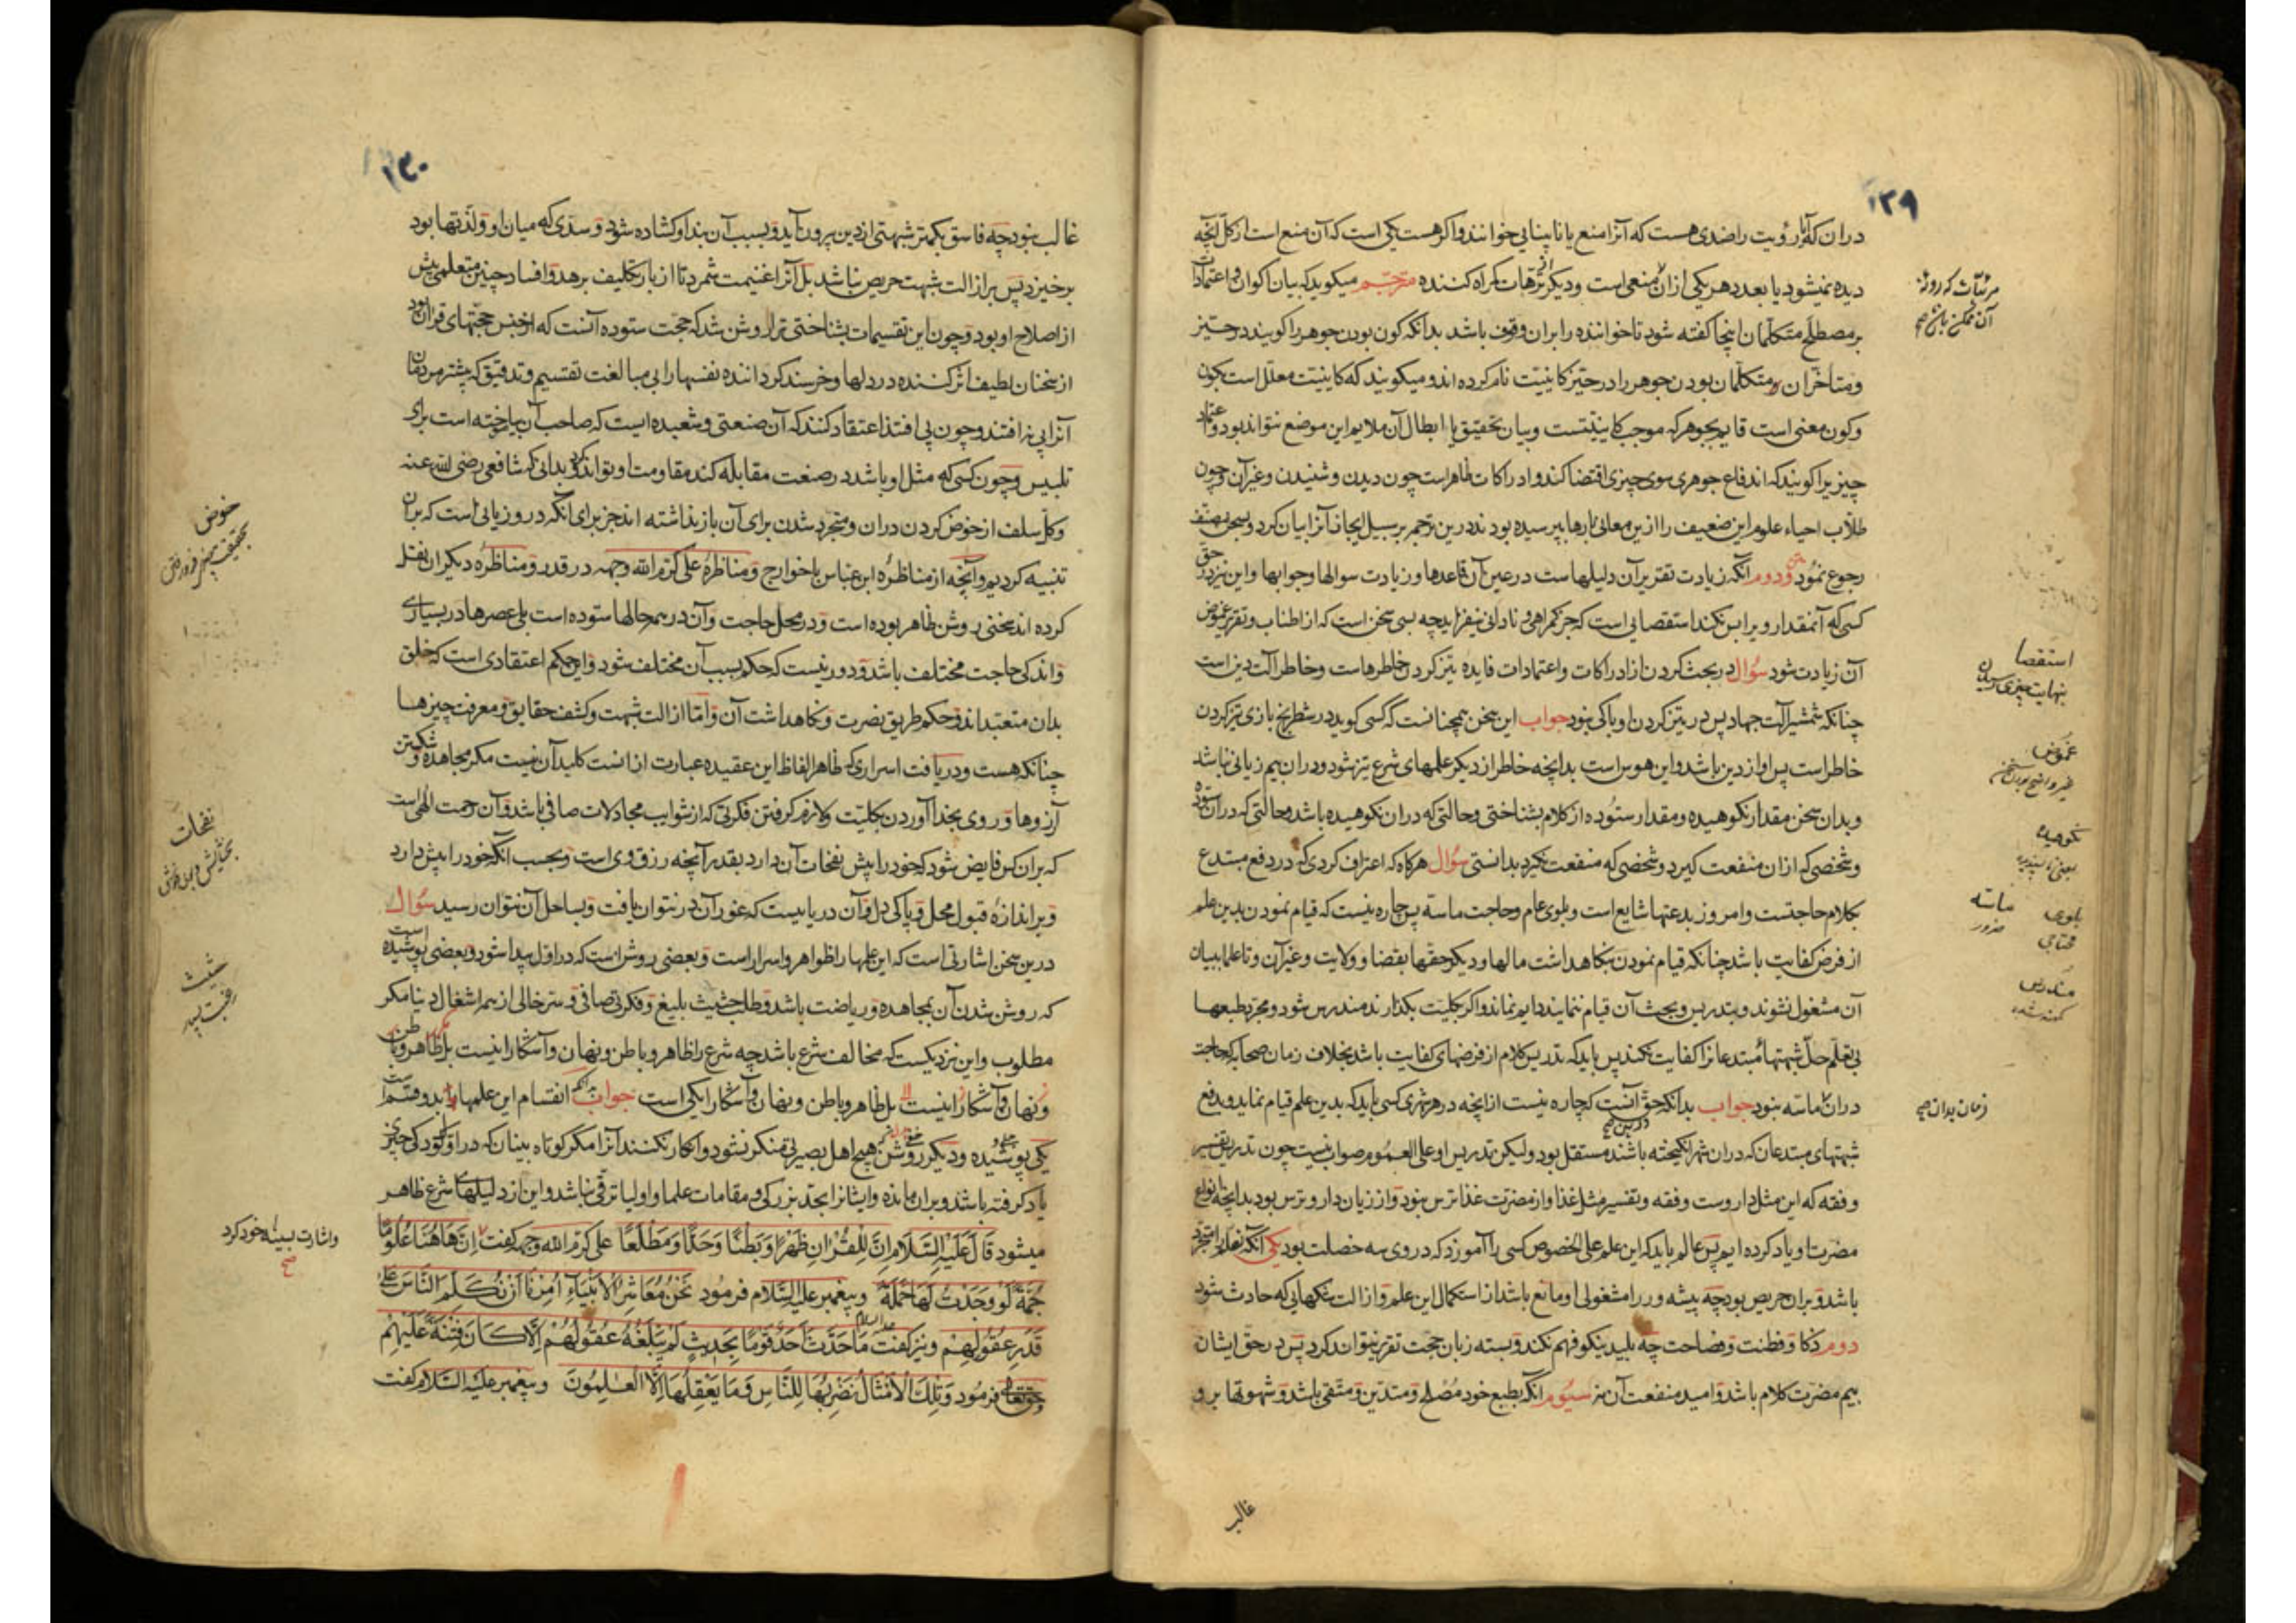 ۱۲۹
دران که آیا رؤیت را ضدی هست که آنرا منع یا نابینایی خوانند و اگر هست یکی است که آن منع است از کل آنچه
دیده نمیشود یا بعدد هر یکی ازان منعی است و دیگر ترهات گمراه کننده مترجم میگوید که بیان اکوان و اعتمادات
بر مصطلح متکلمان اینجا گفته شود تا خواننده را بران وقوف باشد بدانکه کون بودن جوهر را گویند در حیز
و متاخران متکلمان بودن جوهر را در حیز کاینیت نام کرده اند و میگویند که کاینیت معلل است بکون
و کون معنی است قایم بجوهر که موجب کاینیتست و بیان تحقیق یا ابطال آن ملایم این موضع نتواند بود و اعتماد
چیزیرا گویند که اندفاع جوهری سوی چیزی اقتضا کند و ادراکات ظاهراست چون دیدن و شنیدن و غیر آن و چون
طلاب احیاء علوم این ضعیف را ازین معانی بارها بپرسیده بودند درین ترجمه بر سبیل ایجاز آنرا بیان کرد و بسخن مصنف
رجوع نمود و دوم آنکه زیادت تقریر آن دلیلهاست در عین آن قاعدها و زیادت سوالها و جوابها و این نیز در حق
کسی که آنمقدار ویرا بس نکند استقصایی است که جز گمراهی و نادانی نیفزاید چه بسی سخن است که از اطناب و تقریر غموض
آن زیادت شود سؤال در بحث کردن از ادراکات و اعتمادات فایده تیز کردن خاطرهاست و خاطر آلت دین است
چنانکه شمشیر آلت جهاد پس در تیز کردن او باکی نبود جواب این سخن همچنانست که کسی گوید در شطرنج بازی تیز کردن
خاطر است پس او از دین باشد و این هوس است بدانچه خاطر از دیگر علمهای شرع تیز شود و دران بیم زیانی نباشد
و بدان سخن مقدار نکوهیده و مقدار ستوده از کلام بشناختی و حالتی که دران نکوهیده باشد و حالتی که دران ستوده
و شخصی که ازان منفعت گیرد و شخصی که منفعت نگیرد بدانستی سؤال هرگاه که اعتراف کردی که در دفع مبتدع
بکلام حاجتست و امروز بدعتها شایع است و بلوی عام و حاجت ماسه پس چاره نیست که قیام نمودن بدین علم
از فرض کفایت باشد چنانکه قیام نمودن بنگاهداشت مالها و دیگر حقها بقضا و ولایت و غیر آن و تا علما ببیان
آن مشغول نشوند و بتدریس و بحث آن قیام ننمایند دایم نماند و اگر بکلیت بگذارند مندرس شود و مجرد طبعها
بی تعلم حل شبهتهاء مبتدعان را کفایت نکند پس باید که تدریس کلام از فرضهای کفایت باشد بخلاف زمان صحابه که حاجت
دران ماسه نبود جواب بدانکه حق آنست که چاره نیست از آنچه در هر شهری کسی باید که بدین علم قیام نماید و بدفع
شبهتهای مبتدعان که دران شهر انگیخته باشند مستقل بود ولیکن تدریس او علی العموم صواب نیست چون تدریس تفسیر
و فقه که این مثل داروست و فقه و تفسیر مثل غذا و از مضرت غذا ترس نبود و از زیان دارو ترس بود بدانچه انواع
مضرت او یاد کرده ایم پس عالم باید که این علم علی الخصوص کسی را آموزد که در وی سه خصلت بود یکی آنکه تعلم را متجرد
باشد و بران حریص بود چه پیشه ور را مشغولی او مانع باشد از استکمال این علم و ازالت شکهایی که حادث شود
دوم ذکا و فطنت و فصاحت چه بلید نیکو فهم نکند و بسته زبان حجت تقریر نتواند کرد پس در حق ایشان
بیم مضرت کلام باشد و امید منفعت آن نه سیوم آنکه بطبع خود مصلح و متدین و متقی باشد و شهوتها برو
غالب
مرئیات که روئه
آن ممکن باشد صح
استقصا
بنهایت چیزی رسیدن
غموض
غیر واضح بودن سخن
نکوهیده
یعنی ناپسندیده
بلوی
محتاجی
ماسه
ضرور
مندرس
کهنه شده
زمان بدان صح
۱۳۰
غالب نبود چه فاسق بکمتر شبهتی از دین بیرون آید و بسبب آن بند او گشاده شود و سدی که میان او و لذتها بود
برخیزد پس بر ازالت شبهت حریص نباشد بل آنرا غنیمت شمرد تا از بار تکلیف برهد و افساد چنین متعلمی بیش
از اصلاح او بود و چون این تقسیمات بشناختی ترا روشن شد که حجت ستوده آنست که از جنس حجتهای قرآن بود
از سخنان لطیف اثر کننده در دلها و خرسند گرداننده نفسها را بی مبالغت تقسیم و تدقیق که بیشتر مردمان
آنرا پی نه افتند و چون پی افتند اعتقاد کنند که آن صنعتی و شعبده ایست که صاحب آن بیاموخته است برای
تلبیس و چون کسی که مثل او باشد در صنعت مقابله کند مقاومت او تواند کرد و بدانی که شافعی رضی الله عنه
و کل سلف از خوض کردن دران و متجرد شدن برای آن باز نداشته اند جز برای آنکه درو زیانی است که بران
تنبیه کردیم و آنچه از مناظرهٔ ابن عباس با خوارج و مناظرهٔ علی کرم الله وجهه در قدر و مناظره دیگران نقل
کرده اند سخنی روشن ظاهر بوده است و در محل حاجت و آن در همه حالها ستوده است بلی عصرها در بسیاری
و اندکی حاجت مختلف باشد و دور نیست که حکم بسبب آن مختلف شود و این حکم اعتقادی است که خلق
بدان متعبد اند و حکم طریق نصرت و نگاهداشت آن و اما ازالت شبهت و کشف حقایق و معرفت چیزها
چنانکه هست و دریافت اسراری که ظاهر الفاظ این عقیده عبارت ازانست کلید آن نیست مگر مجاهده و شکستن
آرزوها و روی بخدا آوردن بکلیت و لازم گرفتن فکرتی که از شوایب مجادلات صافی باشد و آن رحمت الهی است
که بران کس فایض شود که خود را پیش نفحات آن دارد بقدر آنچه رزق وی است و بحسب آنکه خود را پیش دارد
و بر اندازهٔ قبول محل و پاکی دل و آن دریاییست که غور آن در نتوان یافت و بساحل آن نتوان رسید سؤال
درین سخن اشارتی است که این علمها را ظواهر و اسرار است و بعضی روشن است که در اول پیدا شود و بعضی پوشیده است
که روشن شدن آن بمجاهده و ریاضت باشد و طلب حثیث بلیغ و فکرتی صافی و سر خالی از همه اشغال دنیا مگر
مطلوب و این نزدیکست که مخالف شرع باشد چه شرع را ظاهر و باطن و نهان و آشکارا نیست بل ظاهر و باطن
و نهان و آشکارا نیست بل ظاهر و باطن و نهان و آشکارا یکی است جواب بدانکه انقسام این علمها بدو قسم است
یکی پوشیده و دیگر روشن هیچ اهل بصیرتی منکر نشود و انکار نکنند آنرا مگر کوتاه بینان که در اول کودکی چیزی
یاد گرفته باشند و بران مانده و ایشانرا بحد بزرگی و مقامات علما و اولیا ترقی نباشد و این از دلیلهاء شرع ظاهر
میشود قَالَ عَلَیْهِ السَّلَام اِنَّ لِلْقُرْانِ ظَهْرًا وَبَطْنًا وَحَدًّا وَمَطْلَعًا علی کرم الله وجهه گفت اِنَّ هَاهُنَا عُلُومًا
جُمَّةً لَوْ وَجَدْتُ لَهَا حَمَلَةً و پیغمبر علیه السلام فرمود نَحْنُ مَعَاشِرُ الْاَنْبِیَآءِ اُمِرْنَا اَنْ نُکَلِّمَ النَّاسَ عَلٰی
قَدْرِ عُقُوْلِهِمْ و نیز گفت علیه السلام مَا حَدَّثَ اَحَدٌ قَوْمًا بِحَدِیثٍ لَمْ یَبْلُغْهُ عُقُوْلُهُمْ اِلَّا کَانَ فِتْنَةً عَلَیْهِمْ
حقتعالی فرمود وَتِلْکَ الْاَمْثَالُ نَضْرِبُهَا لِلنَّاسِ وَمَا یَعْقِلُهَا اِلَّا الْعٰلِمُونَ و پیغمبر علیه السلام گفت
خوض
بحقیقت چیزی فرو رفتن
نفحات
بخشایش
حثیث
واشارت بسینه خود کرد
صح